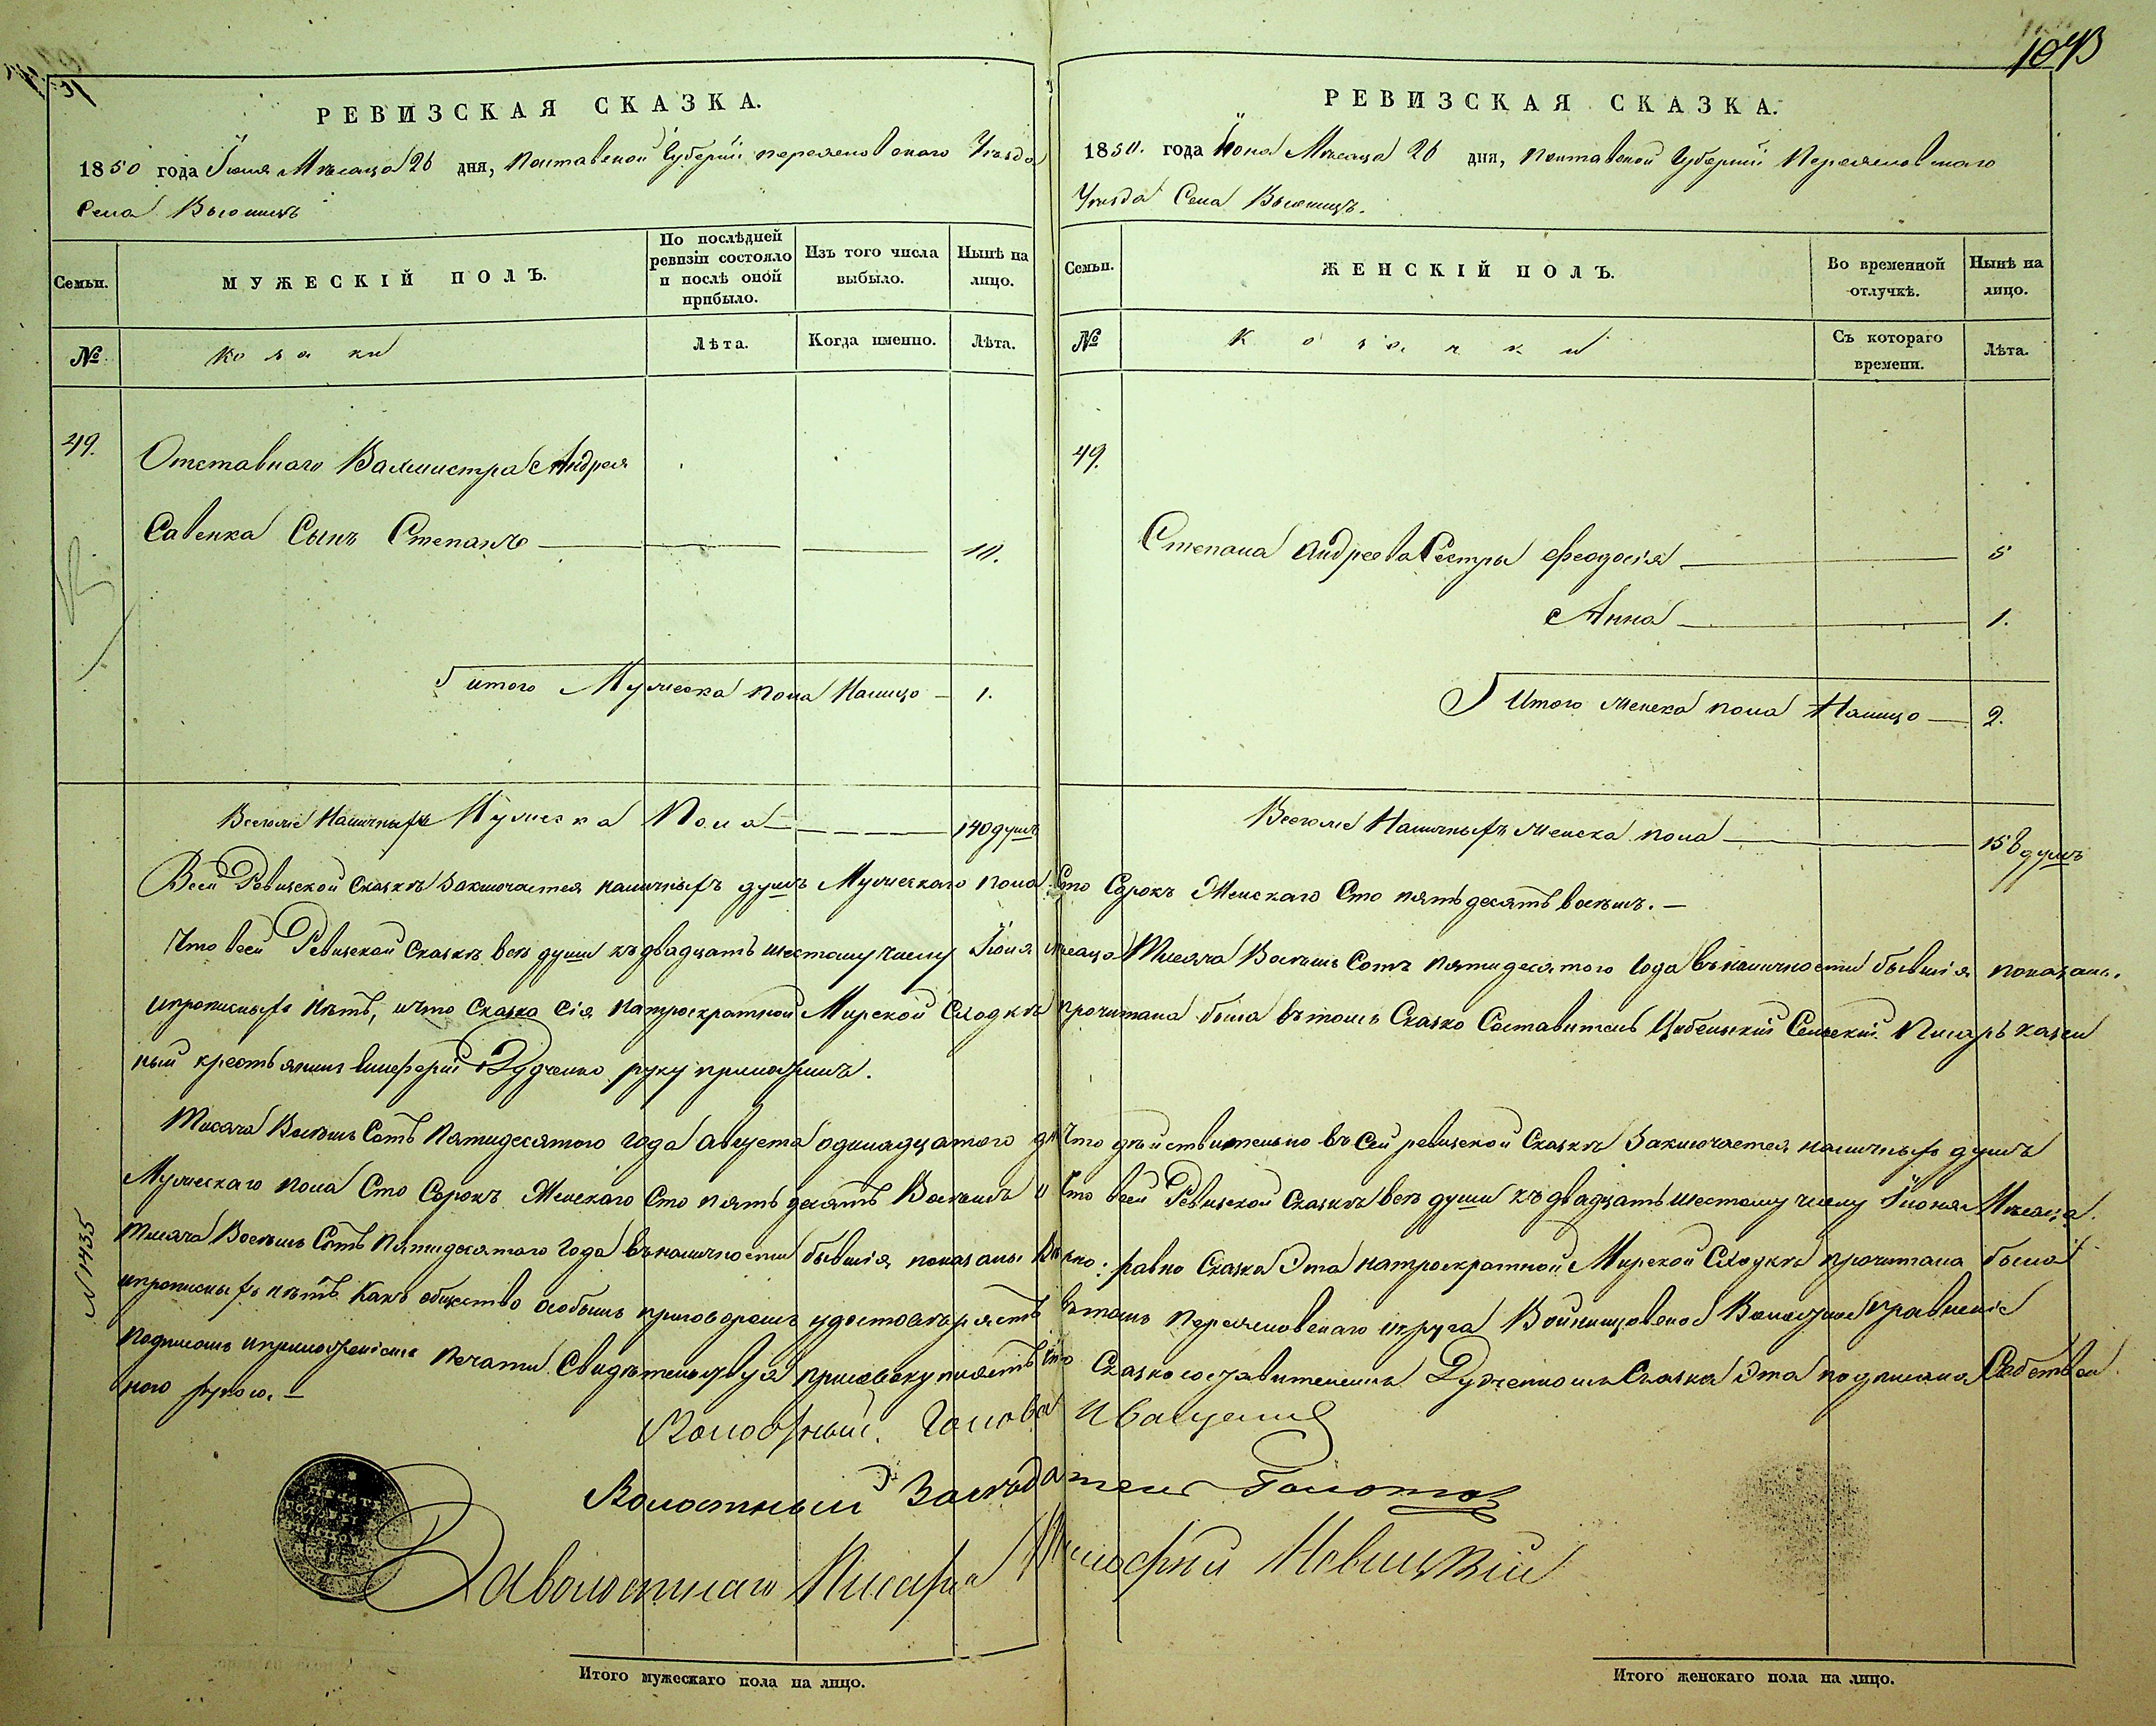 1073
РЕВИЗСКАЯ СКАЗКА.
1850 года Іюня Мѣсяца 26 дня, Полтавской Губерніи Переяславского Уѣзда
Села Вьюнищъ
Семьи.
МУЖЕСКІЙ ПОЛЪ.
По послѣдней ревизіи состояло и послѣ оной прибыло.
Изъ того числа выбыло.
Нынѣ на лицо.
№
Козаки
Лѣта.
Когда именно.
Лѣта.
49.
Отставнаго Вахмистра Андрея
Савенка Сынъ Степанъ 11.
Итого Мужеска пола Налицо 1.
Всегоже Наличныхъ Мужеска Пола 140 душъ
РЕВИЗСКАЯ СКАЗКА.
1850. года Іюня Мѣсяца 26 дня, Полтавской Губерніи Переяславского
Уѣзда Села Вьюнищъ.
Семьи.
ЖЕНСКІЙ ПОЛЪ.
Во временной отлучкѣ.
Нынѣ на лицо.
№
Козачки
Съ котораго времени.
Лѣта.
49.
Степана Андреева Сестры Феодосія 5
Анна 1.
Итого женска пола Налицо 2.
Всегоже Наличныхъ женска пола 158 душъ
Всей Ревизской сказкѣ заключается наличныхъ душъ Мужескаго пола Сто Сорокъ Женскаго Сто пятьдесятъ восемь.
Что всей Ревизской сказкѣ всѣ души къ двадцать шестому числу Іюня мѣсяца Тысяча Восемь Сотъ пятидесятого Года въ наличности бывшія показаны.
ипрописныхъ нѣтъ, ичто Сказка сія натроекратной Мирской Сходкѣ прочитана была вътомъ Сказко Составитель Сельскій Писарь казен
ный крестьянинъ Дудченко руку приложилъ.
Тысяча Восемь Сотъ Пятидесятого года августа одинадцатого дня Что дѣйствительно въ Сей ревизской Сказкѣ Заключается наличныхъ душъ
Мужескаго пола Сто Сорокъ Женскаго Сто пятьдесятъ Восемь и Что всей Ревизской Сказкѣ всѣ души къ двадцать шестому числу Іюня Мѣсяца
Тысяча Восемь Сотъ Пятидесятого Года въ наличности бывшія показаны Вѣрно: равно Сказка Эта натроекратной Мирской Сходкѣ прочитана была
ипрописныхъ нѣтъ Какъ общество особымъ приговоромъ удостовѣряетъ вътомъ Переяславского округа Войницовское Волостное правленіе
Подписомъ иприложеніемъ Печати Свидѣтельствуя присовокупляетъ что Сказкосоставителемъ Дудченкомъ Сказка Эта подписана Собствен
ною рукою.
№ 1435
Волостный Голова Иващенко
Волостный Засѣдатель
За волостнаго Писаря Новицкій
Итого мужескаго пола на лицо.
Итого женскаго пола на лицо.